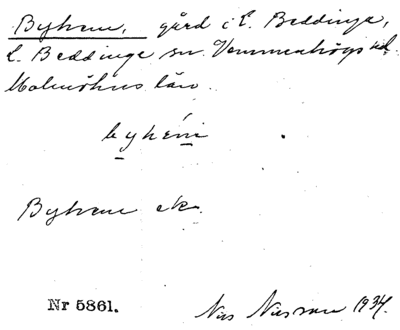 Byhem, gård i L. Beddinge,
L. Beddinge sn. Vemmenhögs hd.
Malmöhus län.
byhém
Byhem ek.
Nr 5861.
Nils Nilsson 1934.